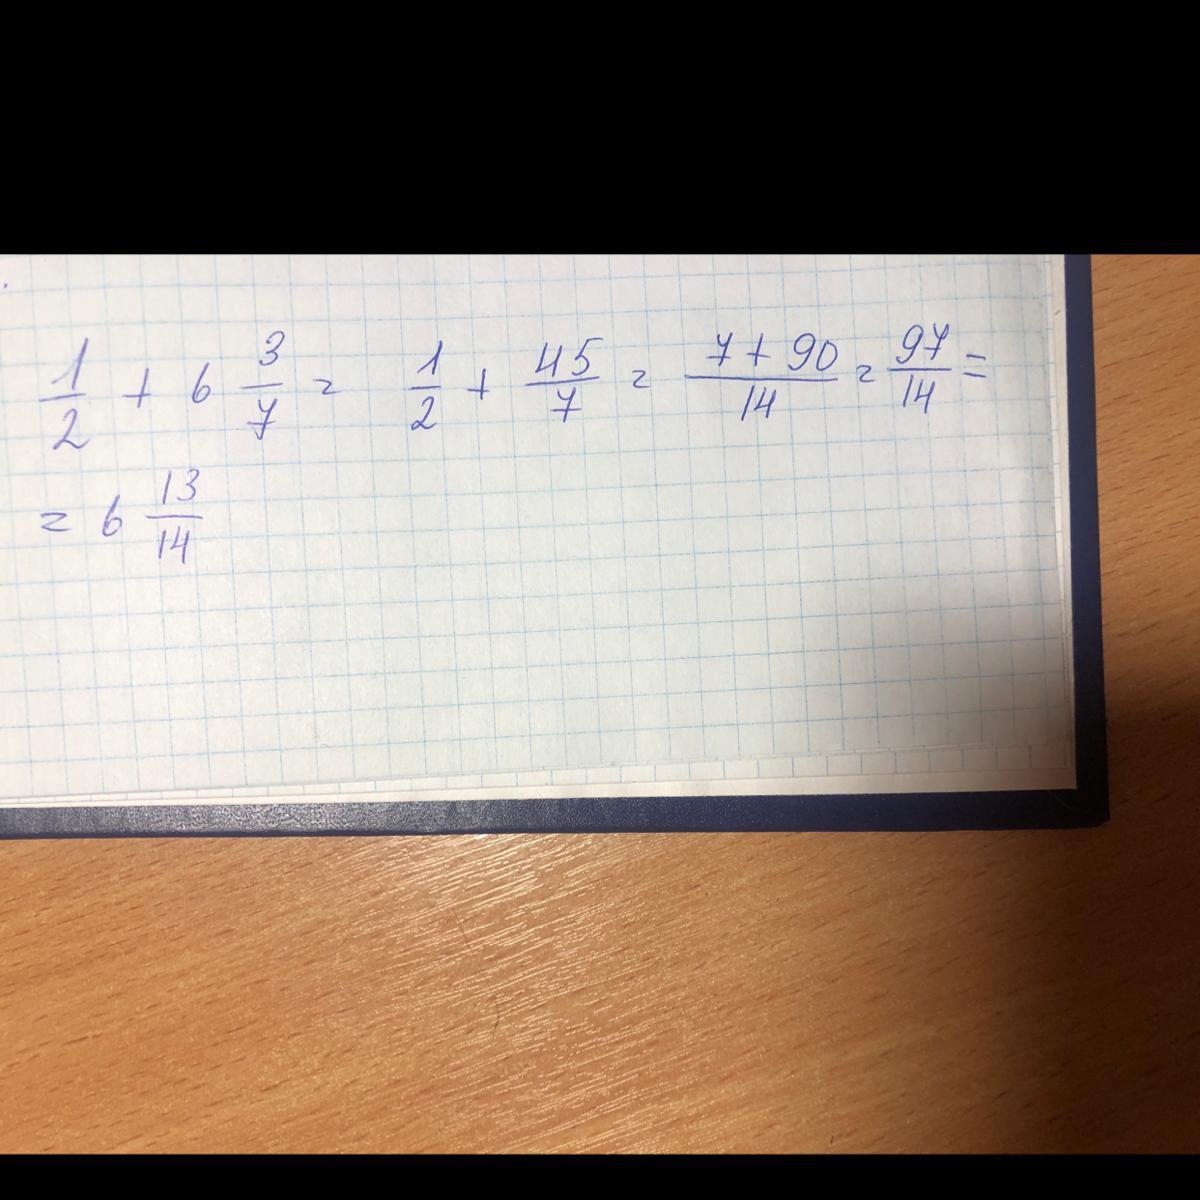 1/2 + 6 3/7 = 1/2 + 45/7 = (7 + 90)/14 = 97/14 =
= 6 13/14